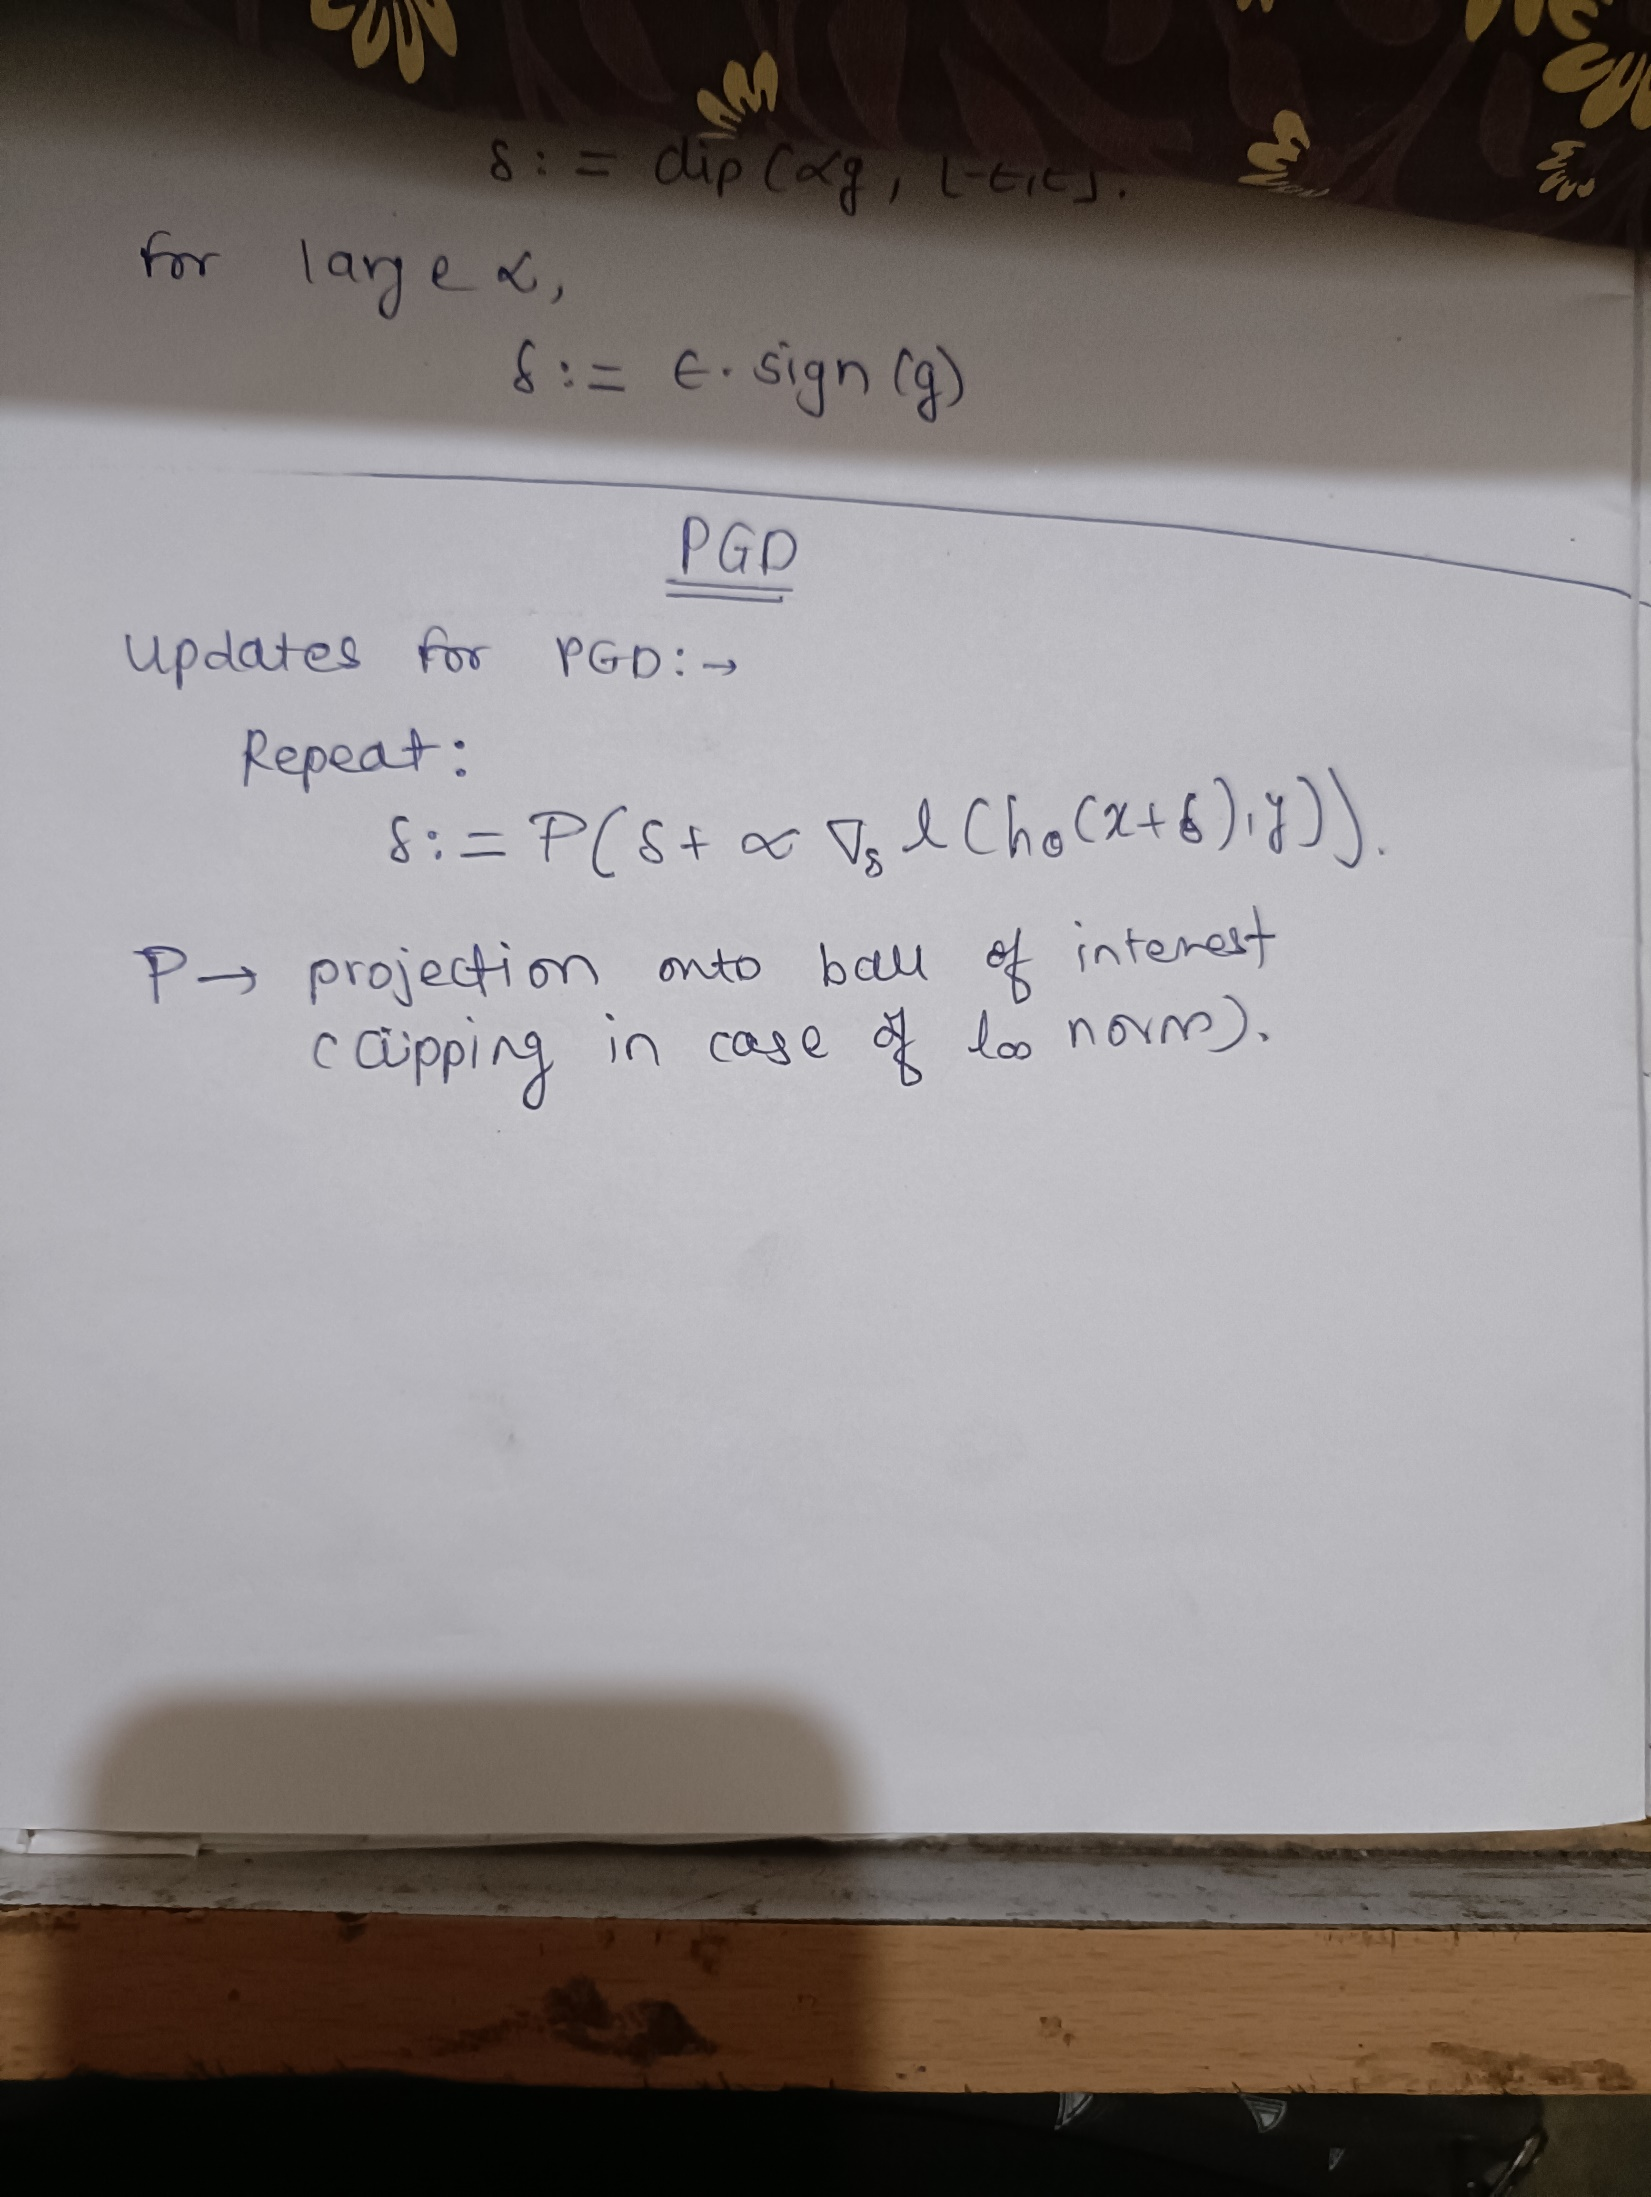 δ := clip (αg, [-ϵ,ϵ].
for large α,
δ := ϵ. sign (g)
PGD
updates for PGD: →
Repeat:
δ := P(δ + α ∇δ l (hθ(x+δ),y)).
P → projection onto ball of interest
(clipping in case of l∞ norm).